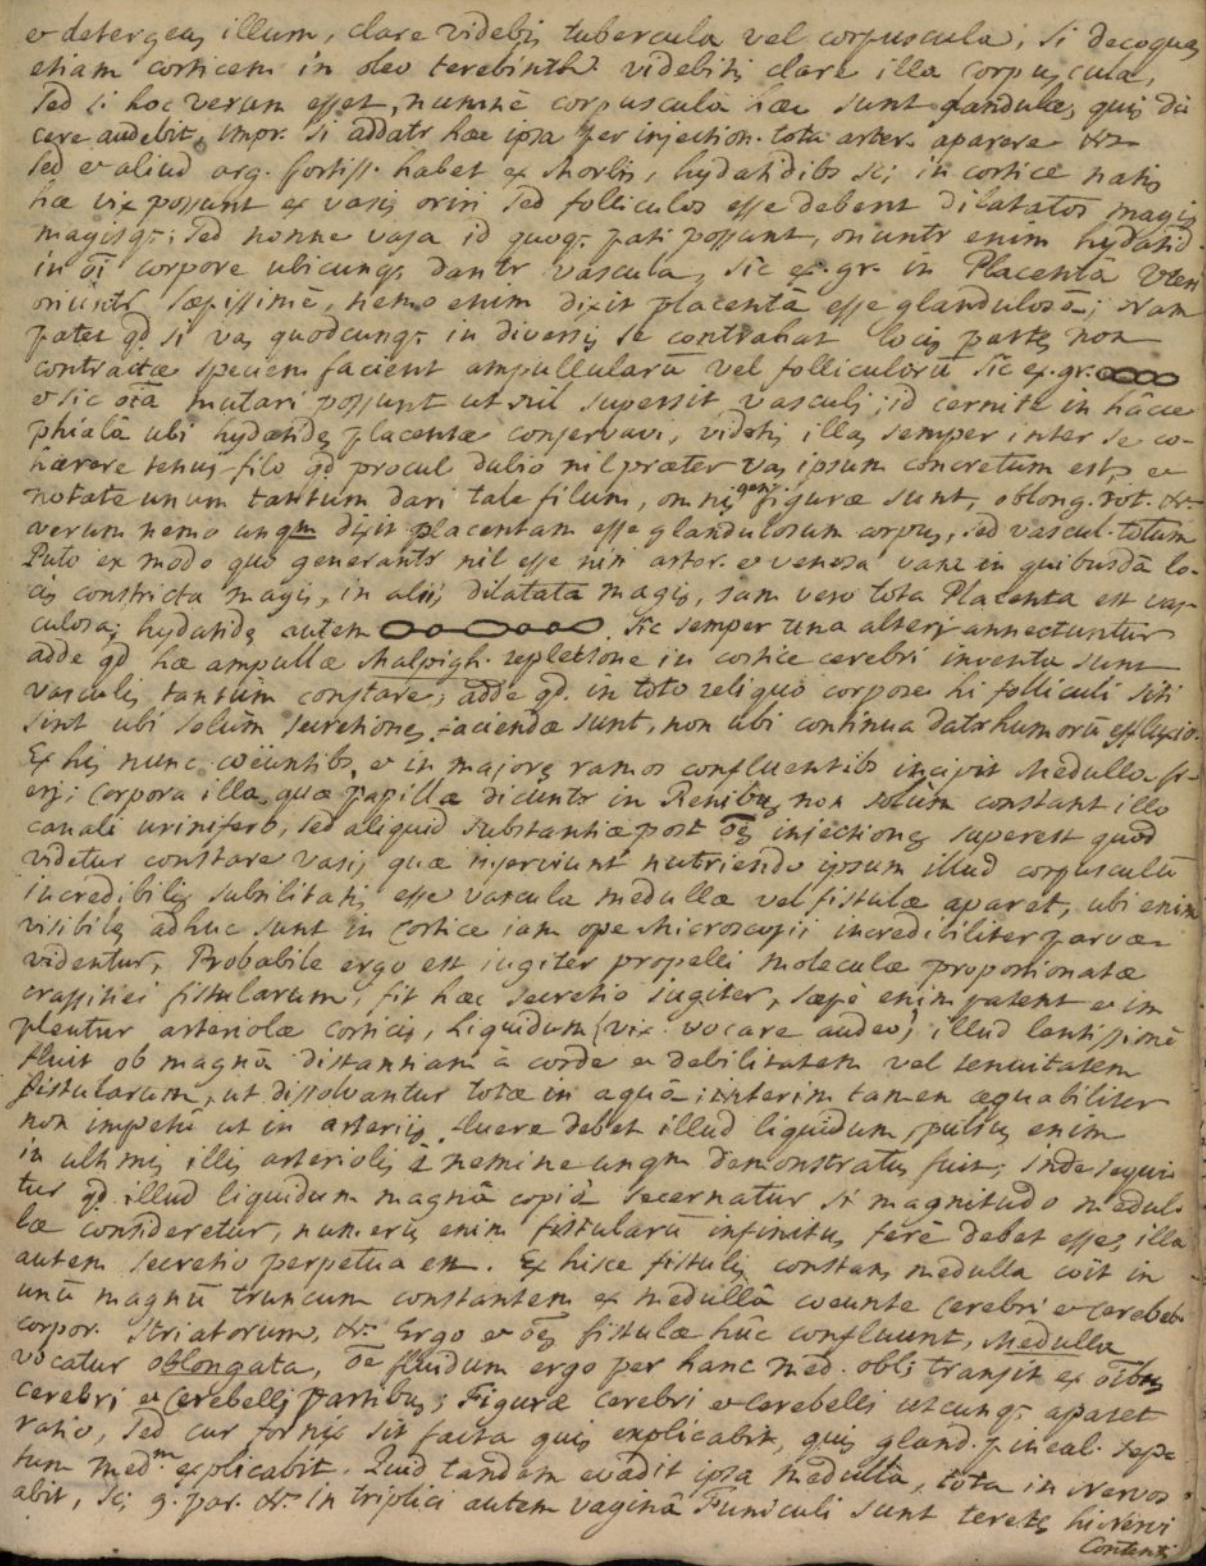 & detergeas illum, clare videbis tubercula vel corpuscula; si decoquas
etiam corticem in oleo terebinth. videbitis clare illa corpuscula,
sed si hoc verum esset, numne corpuscula hæc sunt glandulæ, quis di
cere audebit, impr. si addatr hæc ipsa per injection. tota arter. aparere &c
sed & aliud arg. fortiss. habet ex Morbis, hydatidibs sc; in cortice natis
hæ vix possunt ex vasis oriri sed folliculos esse debent dilatatos magis
magisq;: sed nonne vasa id quoq; pati possunt, oriuntr enim hydatid.
in oi corpore ubicunq; dantr vascula, sic ex. gr. in Placentâ Uteri
oriuntr sæpissimè, nemo enim dixit placentā esse glandulosā; Nam
patet qd si vas quodcunq; in diversis se contrahat locis partes non
contractæ speciem facient ampullularū vel folliculorū sic ex. gr.
& sic oīa mutari possunt ut nil supersit vasculi; id cernite in hâcce
phialâ ubi hydatides placentæ conservavi, videtis illas semper inter se co-
hærere tenui filo qd procul dubio nil præter vas ipsum concretum est, &
notate unum tantum dari tale filum, omnis gen. figuræ sunt, oblong. rot. &c
verum nemo unqm dixit placentam esse glandulosum corpus, sed vascul. totum
Puto ex modo quo generantr nil esse nisi arter. & venosa vasa in quibusdā lo-
cis constricta magis, in aliis dilatata magis, jam vero tota Placenta est vas-
culosa; hydatides autem sic semper una alteri annectuntur
adde qd hæ ampullæ Malpigh. repletione in cortice cerebri inventa sunt
vasculis tantum constare; adde qd. in toto reliquo corpore hi folliculi siti
sint ubi solùm secretiones faciendæ sunt, non ubi continua datr humorū effluxio.
Ex his nunc coëuntibs, & in majores ramos confluentibs incipit Medulla fi-
eri: Corpora illa quæ papillæ dicuntr in Renibus non solùm constant illo
canali urinifero, sed aliquid substantiæ post oēs injectiones superest quod
videtur constare vasis quæ inserviunt nutriendo ipsum illud corpusculū
incredibilis subtilitatis esse vascula medullæ vel fistulæ aparet, ubi enim
visibiles adhuc sunt in Cortice iam ope Microscopii incredibiliter parvæ
videntur, Probabile ergo est jugiter propelli moleculæ proportionatæ
crassitiei fistularum, fit hæc secretio jugiter, sæpè enim patent & im
plentur arteriolæ corticis, Liquidum (vix vocare audeo) illud lentissimè
fluit ob magnā distantiam à corde & debilitatem vel tenuitatem
fistularum, ut dissolvantur totæ in aquâ; interim tamen æquabiliter
non impetu ut in arteriis fluere debet illud liquidum, pulsus enim
in ultimis illis arteriolis à nemine unqm demonstratus fuit; inde sequi
tur qd illud liquidum magnâ copiâ secernatur si magnitudo medul-
læ consideretur, numerus enim fistularū infinitus ferè debet esse, illa
autem secretio perpetua est. Ex hisce fistulis constans medulla coit in
unū magnū truncum constantem ex medullâ coeunte Cerebri & Cerebel.
corpor. striatorum, &c. Ergo & oēs fistulæ hûc confluunt, Medulla
vocatur oblongata, oē fluidum ergo per hanc med. obl; transit ex oibus
cerebri & Cerebelli partibus; Figuræ Cerebri & Cerebelli utcunq; aparet
ratio, sed cur fornix sit facta quis explicabit, quis gland. pineal. sep
tum medm explicabit. Quid tandem evadit ipsa Medulla, tota in Nervos
abit, sc; 9. par. &c in triplici autem vaginâ Funiculi sunt teretes hi Nervi
Contenti